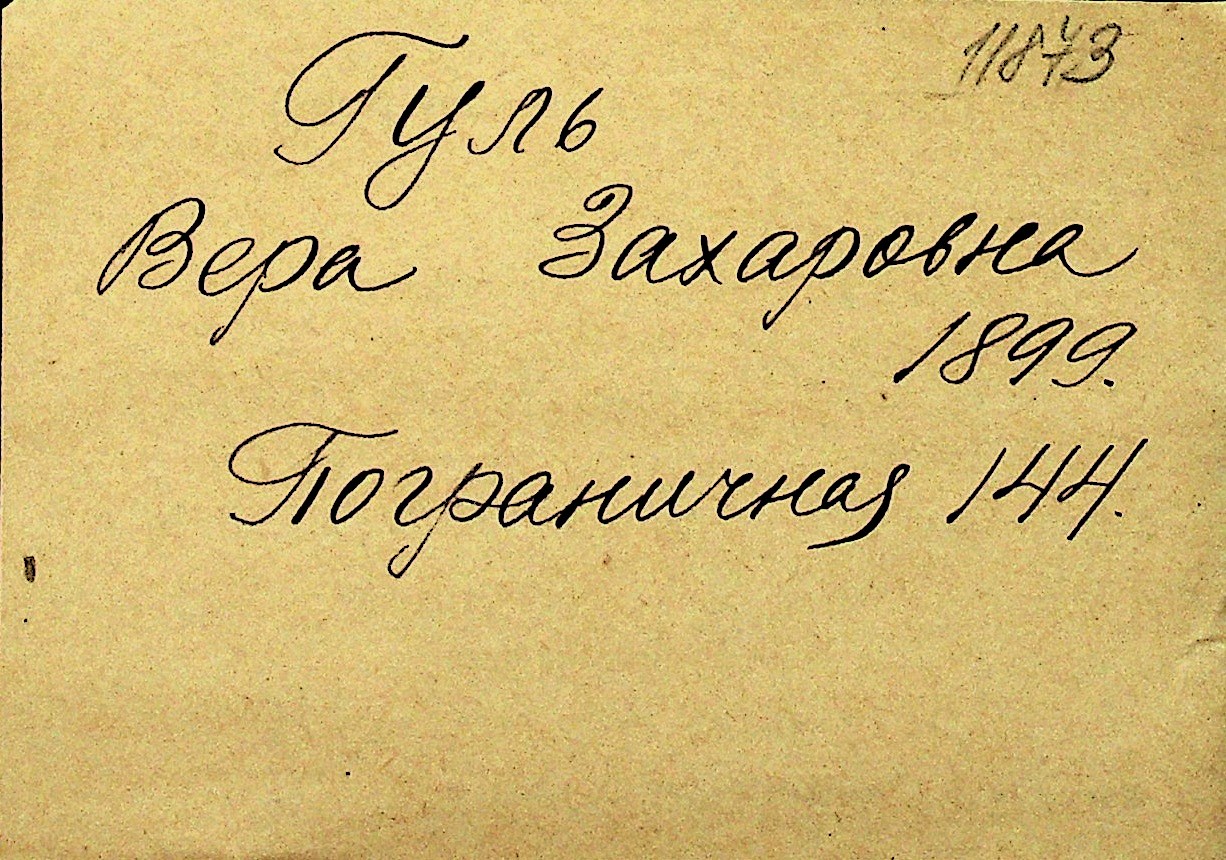 Гуль
Вера Захаровна
1899.
Пограничная 144.